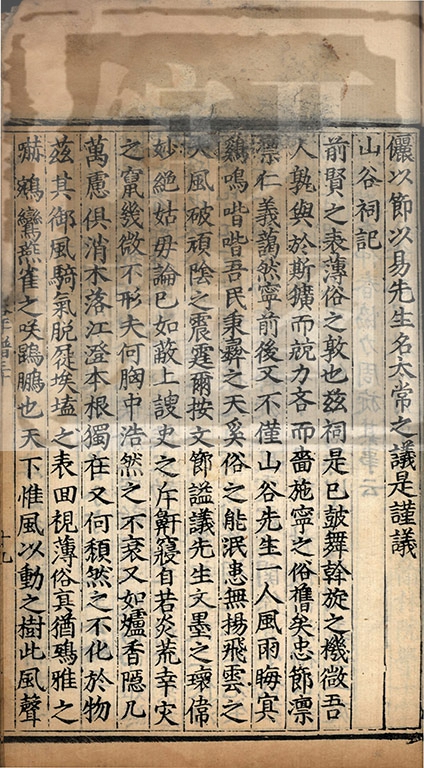 儼以節以易先生名太常之議是謹議
山谷祠記
前賢之表薄俗之敦也兹祠是已鼓舞斡旋之機微吾
人孰與於斯獷而說力吝而嗇施寧之俗舊矣忠節凛
凛仁義藹然寧前後又不僅山谷先生一人風雨晦冥
鷄鳴喈喈吾民秉彝之天奚俗之能泯患無揚飛雲之
大風破頑陰之震霆爾按文節謚議先生文墨之瓌偉
妙絶姑毋論已如蔽上謏史之斥鼾寢自若炎荒幸灾
之竄幾微不形夫何胸中浩然之不衰又如爐香隱几
萬慮俱消木落江澄本根獨在又何頽然之不化於物
兹其御風騎氣脱屣埃壒之表回視薄俗眞猶鵶雅之
嚇鵷鸞燕雀之咲鵾鵬也天下惟風以動之樹此風聲
十九